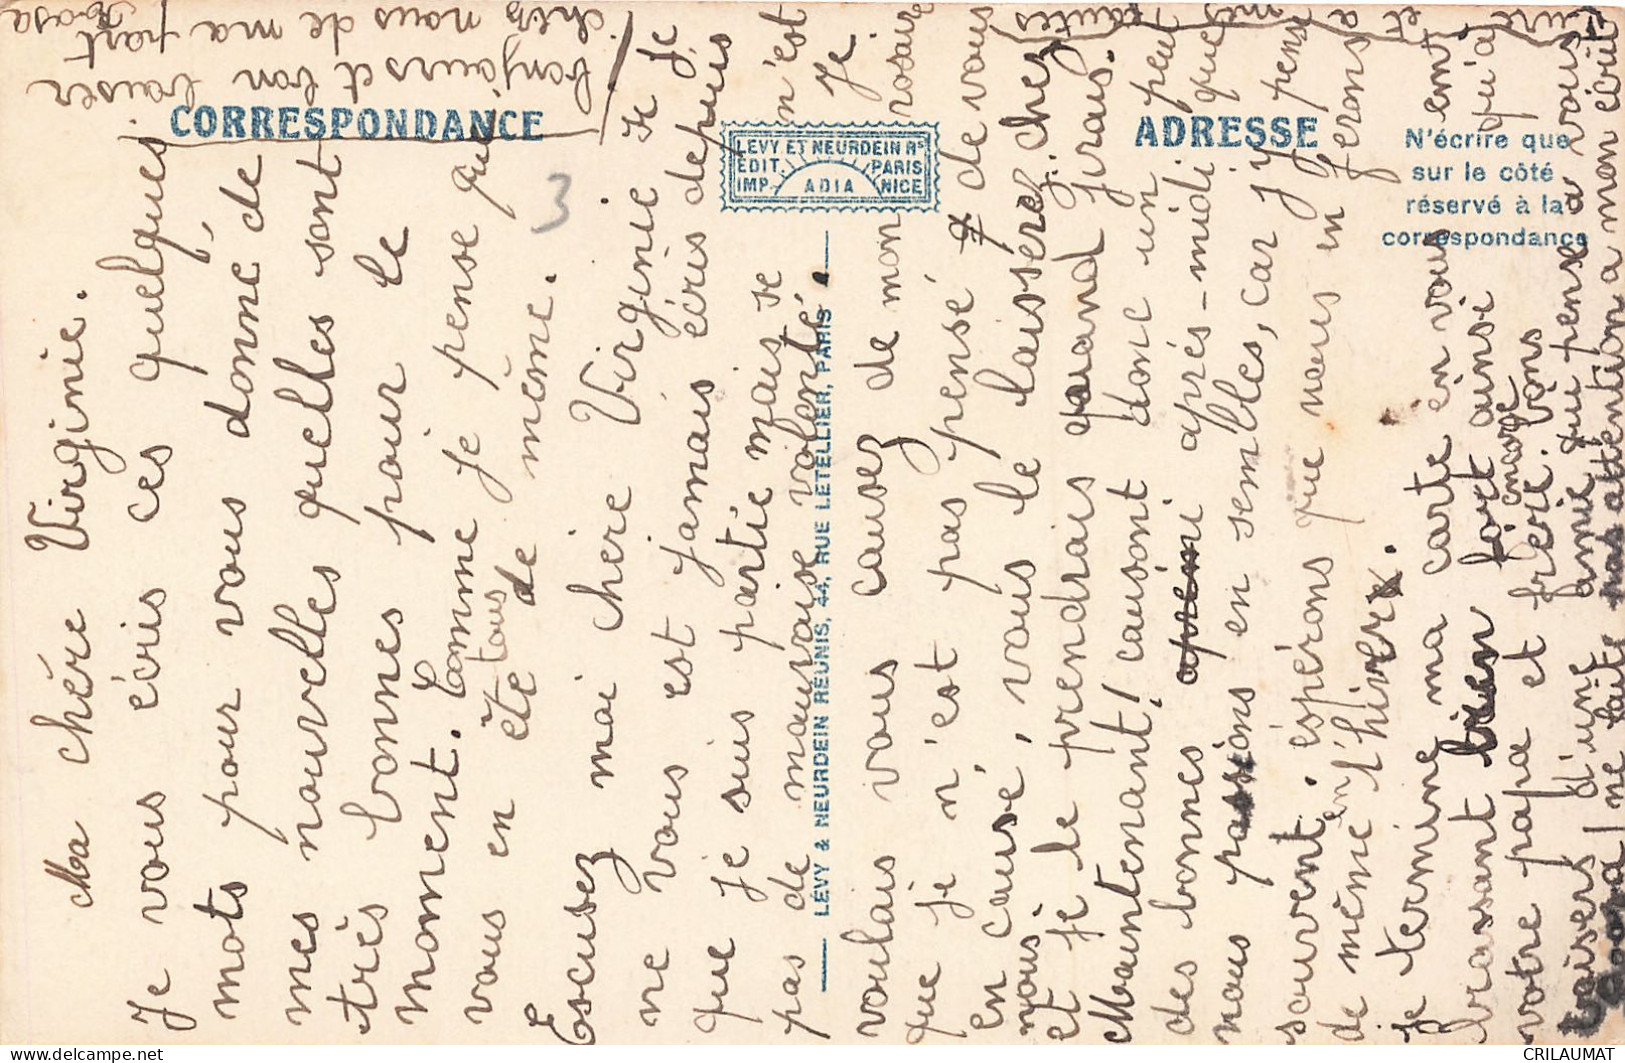 Ma chére Virginie.
Je vous écris ces quelques
mots pour vous donné de
mes nouvelles quelles sont
très bonnes pour le
moment. Comme je pense que
vous en éte tous de même.
Escusez moi chère Virginie si je
ne vous est jamais écris depuis
que je suis partie mais se n'est
pas de mauvaise volonté. Je
voulais vous causez de mon rosaire
que je n'est pas pensé de vous
en causé, vous le laisserez chez
nous et je le prendrais quand j'irais.
Maintenant! causont donc un peu
des bonnes après-midi que
nous passions en sembles, car j'y pense
souvent. espérons que nous en ferons
de même en l'hiver.
Je termine ma carte en vous em
brassant bien fort ainsi qu'a
votre papa et frère. bons
baisers d'une amie qui pense a vous
Rosa ne faite pas attention a mon écrit
ure et a mes fautes
bonjours et bon baiser
chez nous de ma part
Rosa
3
CORRESPONDANCE
LEVY ET NEURDEIN RS
EDIT. PARIS
IMP. ADIA NICE
ADRESSE
N'écrire que
sur le côté
réservé à la
correspondance
LÉVY & NEURDEIN RÉUNIS, 44, RUE LETELLIER, PARIS
delcampe.net
CRILAUMAT